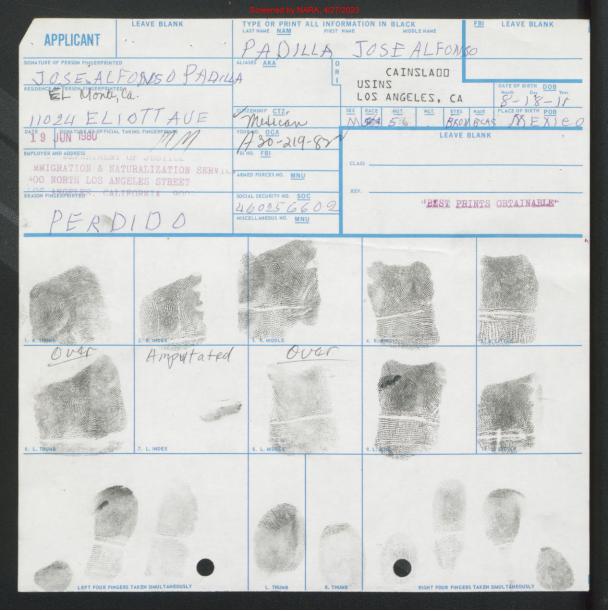 Screened by NARA, 4/27/2023
APPLICANT
LEAVE BLANK
TYPE OR PRINT ALL INFORMATION IN BLACK
LAST NAME NAM FIRST NAME MIDDLE NAME
FBI LEAVE BLANK
PADILLA JOSE ALFONSO
SIGNATURE OF PERSON FINGERPRINTED
JOSE ALFONSO PADILLA
ALIASES AKA
ORI
CAINSLA00
USINS
LOS ANGELES, CA
DATE OF BIRTH DOB
Month Day Year
RESIDENCE OF PERSON FINGERPRINTED
EL Monte, Ca.
11024 ELIOTT AVE
CITIZENSHIP CTZ
Mexican
SEX RACE HGT. WGT. EYES HAIR PLACE OF BIRTH POB
M MEXICO
DATE SIGNATURE OF OFFICIAL TAKING FINGERPRINTS
19 JUN 1980
YOUR NO. OCA
LEAVE BLANK
EMPLOYER AND ADDRESS
DEPARTMENT OF JUSTICE
MMIGRATION & NATURALIZATION SERVI
300 NORTH LOS ANGELES STREET
LOS ANGELES, CALIFORNIA
FBI NO. FBI
CLASS
ARMED FORCES NO. MNU
REF.
REASON FINGERPRINTED
PERDIDO
SOCIAL SECURITY NO. SOC
460256602
"BEST PRINTS OBTAINABLE"
MISCELLANEOUS NO. MNU
1. R. THUMB 2. R. INDEX 3. R. MIDDLE
Over Amputated Over
6. L. THUMB 7. L. INDEX 8. L. MIDDLE
LEFT FOUR FINGERS TAKEN SIMULTANEOUSLY L. THUMB R. THUMB RIGHT FOUR FINGERS TAKEN SIMULTANEOUSLY